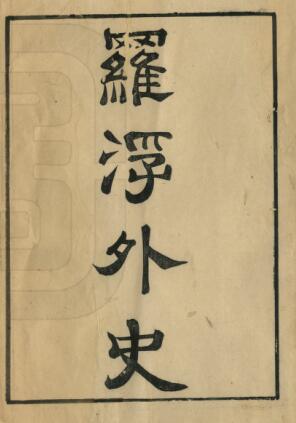 羅浮外史